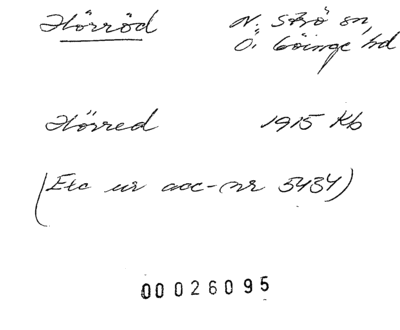 Hörröd N. Strö sn,
Ö. Göinge hd
Hörred 1915 Kb
(Exc ur acc-nr 5434)
00026095